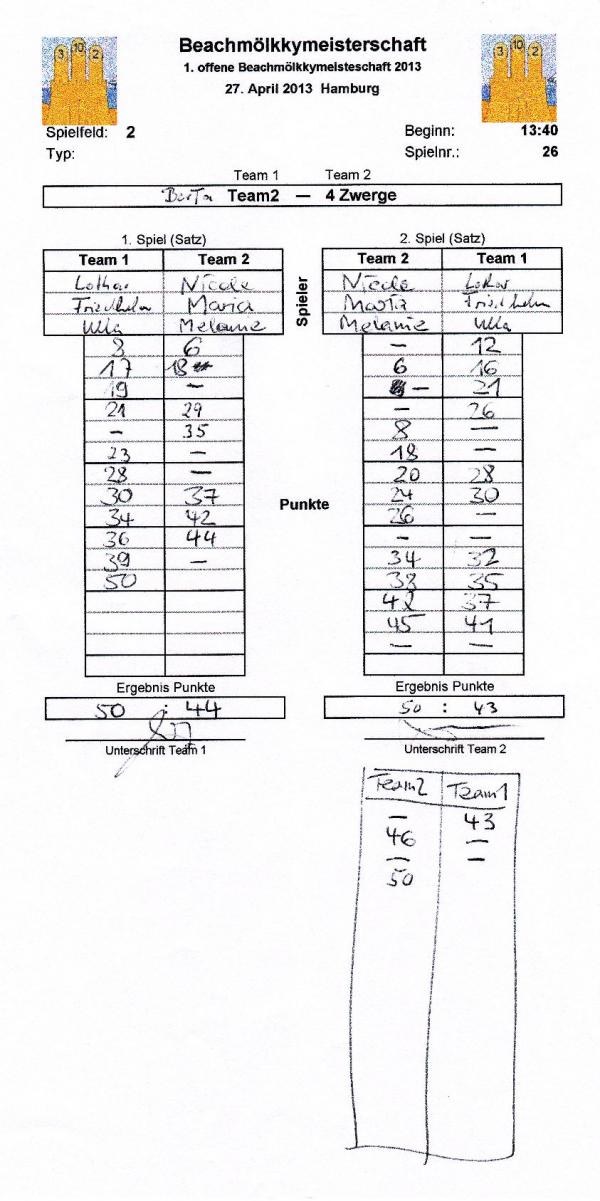 3 10 2
3 10 2
Beachmölkkymeisterschaft
1. offene Beachmölkkymeisteschaft 2013
27. April 2013 Hamburg
Spielfeld: 2 Beginn: 13:40
Typ: Spielnr.: 26
Team 1 Team 2
Berta Team2 — 4 Zwerge
1. Spiel (Satz) 2. Spiel (Satz)
Team 1 Team 2 Spieler Team 2 Team 1
Lothar Nicole Nicole Lothar
Friedhelm Maria Maria Friedhelm
Ulla Melanie Melanie Ulla
8 6 — 12
17 18 6 16
19 — — 21
21 29 — 26
— 35 8 —
23 — 18 —
28 — 20 28
30 37 Punkte 24 30
34 42 26 —
36 44 — —
39 — 34 32
50 38 35
42 37
45 41
— —
Ergebnis Punkte Ergebnis Punkte
50 : 44 50 : 43
Unterschrift Team 1 Unterschrift Team 2
Team2 Team1
— 43
46 —
— —
50